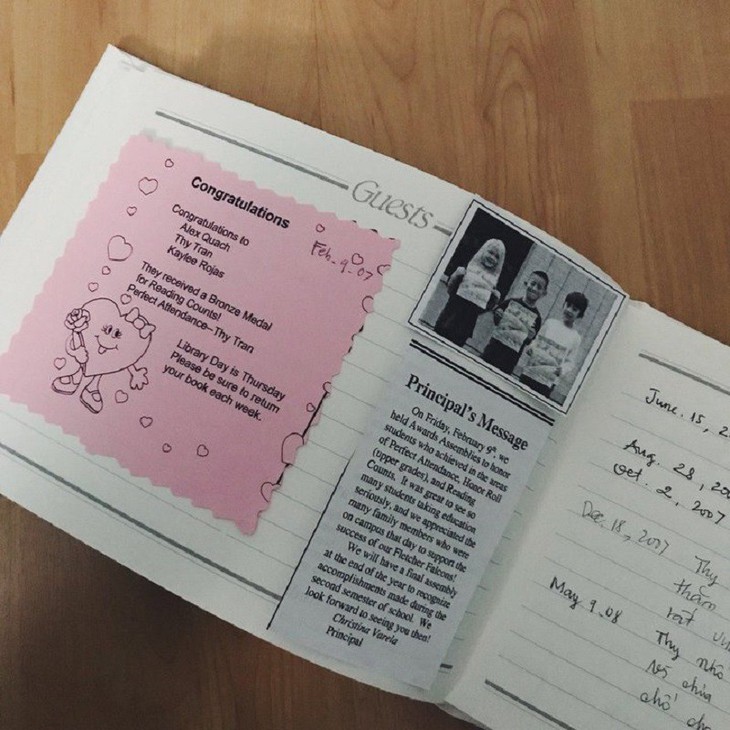 Guests
Congratulations
Feb_9_07
Congratulations to
Alex Quach
Thy Tran
Kaylee Rojas
They received a Bronze Medal
for Reading Counts!
Perfect Attendance--Thy Tran
Library Day is Thursday
Please be sure to return
your book each week.
Principal's Message
On Friday, February 9th, we
held Awards Assemblies to honor
students who achieved in the areas
of Perfect Attendance, Honor Roll
(upper grades), and Reading
Counts. It was great to see so
many students taking education
seriously, and we appreciated the
many family members who were
on campus that day to support the
success of our Fletcher Falcons!
We will have a final assembly
at the end of the year to recognize
accomplishments made during the
second semester of school. We
look forward to seeing you then!
Christina Varela
Principal
June. 15, 2
Aug. 28, 200
Oct. 2, 2007
Dec. 18, 2007 Thy
May_9_08
Thy nhổ